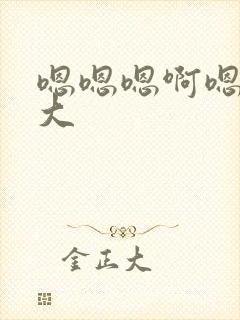 嗯嗯嗯啊嗯
大
金正大